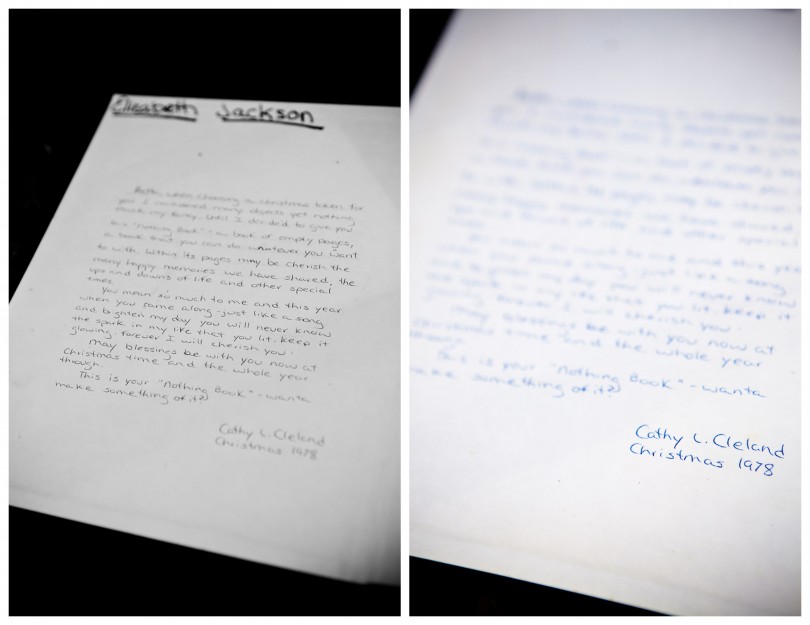 Elizabeth Jackson
Beth, when choosing a christmas token for
you I considered many objects yet nothing
struck my fancy. Until I decided to give you
this "Nothing Book" - a book of empty pages,
a book that you can do whatever you want
to with. Within its pages may be cherish the
many happy memories we have shared, the
ups and downs of life and other special
times.
You mean so much to me and this year
when you came along - just like a song
and brighten my day you will never know
the spark in my life that you lit. keep it
glowing. forever I will cherish you.
May blessings be with you now at
Christmas time and the whole year
through.
This is your "Nothing Book" - wanta
make something of it?
Cathy L. Cleland
Christmas 1978
never know
you lit. keep it
I will cherish you.
May blessings be with you now at
time and the whole year
This is your "Nothing Book" - wanta
make something of it?
Cathy L. Cleland
Christmas 1978